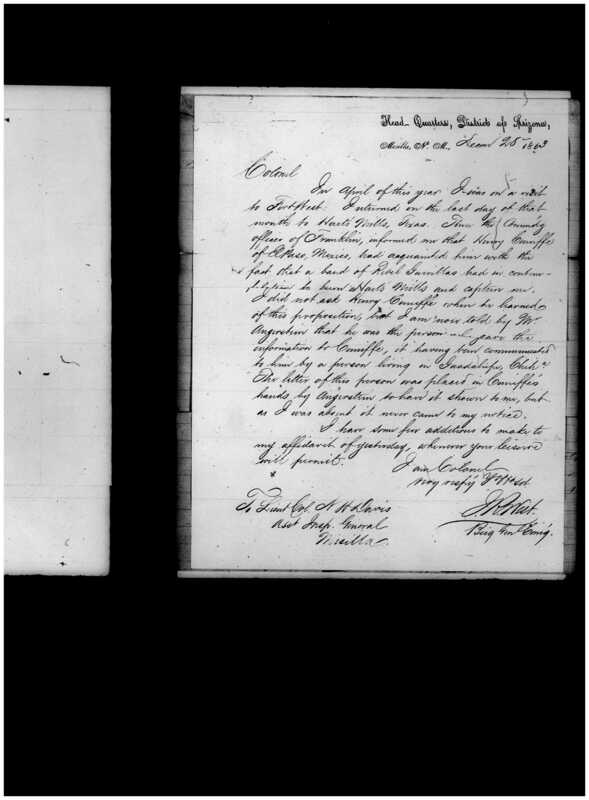 Head-Quarters, District of Arizona,
Mesilla, N. M., Decem 25 1863
Colonel
In April of this year I was on a visit
to Fort West. I returned on the last day of that
month to Harts Mills, Texas. Then the
officer of Franklin, informed me that Henry Cuniffe
of El Paso, Mexico, had acquainted him with the
fact that a band of Rebel Guerillas had in contem-
plation to burn Harts Mills and capture me.
I did not ask Henry Cuniffe when he learned
of this proposition, but I am now told by Mr
Angerstein that he was the person who gave the
information to Cuniffe, it having been communicated
to him by a person living in Guadalupe, Chih.a
The letter of this person was placed in Cuniffe's
hands, by Angerstein to have it shown to me, but
as I was absent it never came to my notice.
I have some few additions to make to
my affidavit of yesterday, whenever your leisure
will permit.
I am Colonel
Very respy Yr Ob Sdt
J R West
Brig Genl Comg.
To Lieut Col. N H Davis
Asst Insp. General
Mesilla